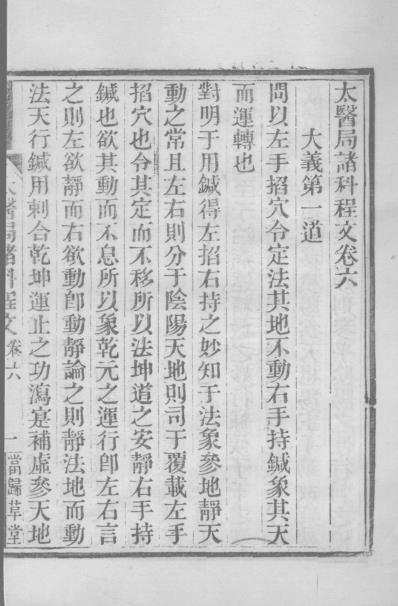 太醫局諸科程文卷六
大義第一道
問以左手搯穴令定法其地不動右手持鍼象其天
而運轉也
對明于用鍼得左搯右持之妙知于法象參地靜天
動之常且左右則分于陰陽天地則司于覆載左手
搯穴也令其定而不移所以法坤道之安靜右手持
鍼也欲其動而不息所以象乾元之運行卽左右言
之則左欲靜而右欲動卽動靜論之則靜法地而動
法天行鍼用刺合乾坤運止之功瀉寔補虛參天地
太醫局諸科程文 卷六 一 當歸草堂